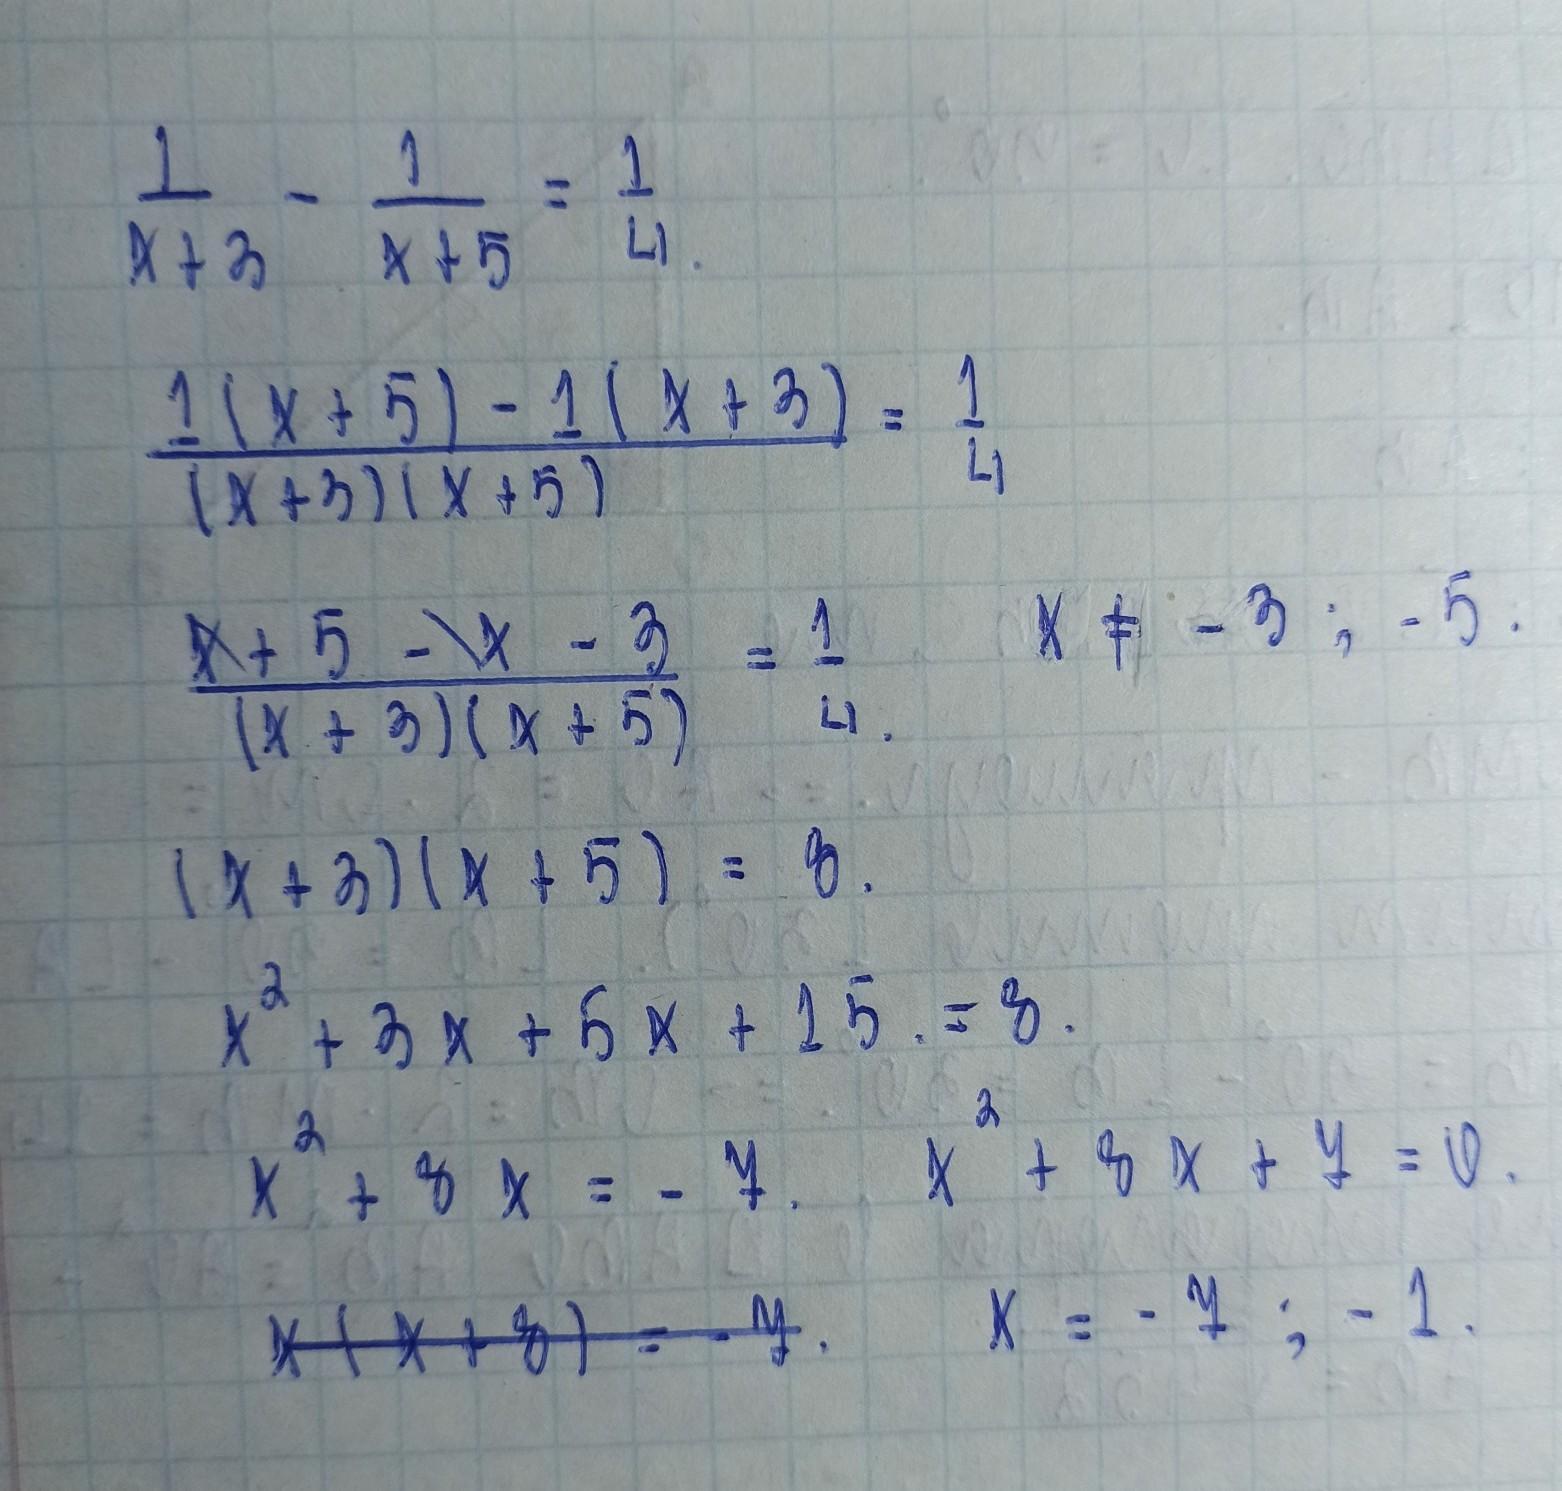 1/(x+3) - 1/(x+5) = 1/4.
(1(x+5) - 1(x+3))/((x+3)(x+5)) = 1/4
(x+5 - x - 3)/((x+3)(x+5)) = 1/4. x ≠ -3; -5.
(x+3)(x+5) = 8.
x² + 3x + 5x + 15. = 8.
x² + 8x = -7. x² + 8x + 7 = 0.
x(x+8) = -7. x = -7; -1.